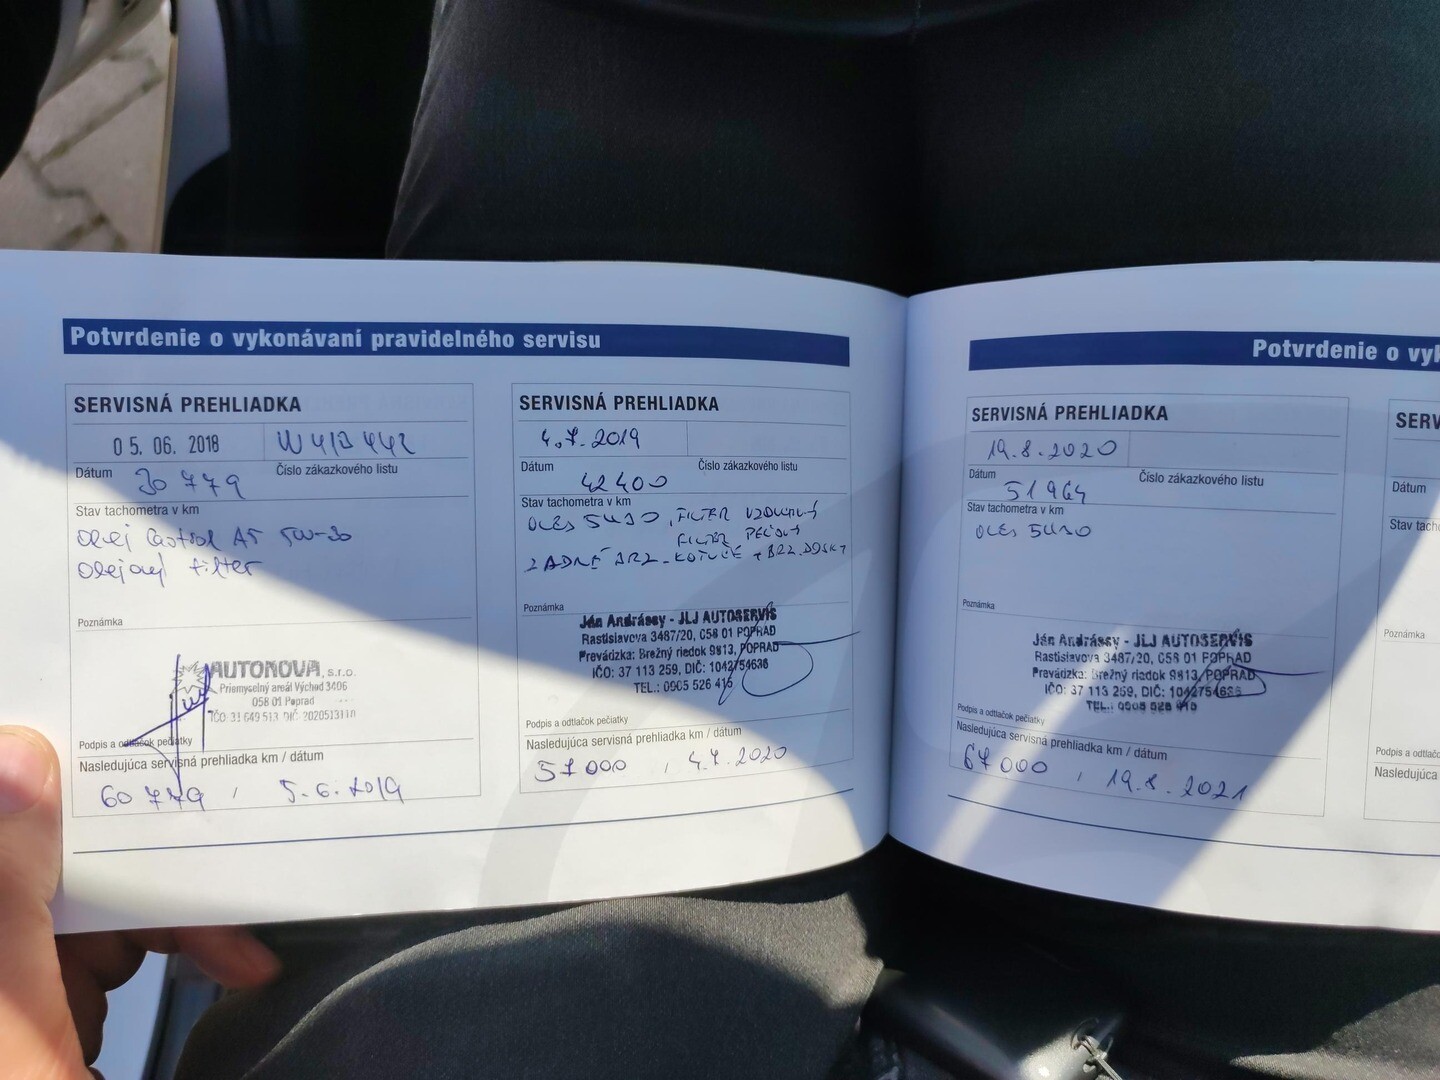 Potvrdenie o vykonávaní pravidelného servisu
SERVISNÁ PREHLIADKA
05. 06. 2018
Dátum
Číslo zákazkového listu
30 779
Stav tachometra v km
olej Castrol A5 5W-30
olejový filter
Poznámka
AUTONOVA, s.r.o.
Priemyselný areál Východ 3406
058 01 Poprad
Podpis a odtlačok pečiatky
Nasledujúca servisná prehliadka km / dátum
60 779 , 5.6.2019
SERVISNÁ PREHLIADKA
4.7.2019
Dátum
Číslo zákazkového listu
42400
Stav tachometra v km
OLEJ 5W30, FILTER VZDUCHOVÝ
FILTER PEĽOVÝ
ZADNÉ BRZ. KOTÚČE + BRZ. DOSKY
Poznámka
Ján Andrássy - JLJ AUTOSERVIS
Rastislavova 3487/20, 058 01 POPRAD
Prevádzka: Brežný riedok 9813, POPRAD
IČO: 37 113 259, DIČ: 1042754636
TEL.: 0905 526 415
Podpis a odtlačok pečiatky
Nasledujúca servisná prehliadka km / dátum
57000 , 4.7.2020
Potvrdenie o vyk
SERVISNÁ PREHLIADKA
19.8.2020
Dátum
Číslo zákazkového listu
51964
Stav tachometra v km
OLEJ 5W30
Poznámka
Ján Andrássy - JLJ AUTOSERVIS
Rastislavova 3487/20, 058 01 POPRAD
Prevádzka: Brežný riedok 9813, POPRAD
IČO: 37 113 259, DIČ: 1042754636
Podpis a odtlačok pečiatky
Nasledujúca servisná prehliadka km / dátum
67000 , 19.8.2021
SERV
Dátum
Stav tach
Poznámka
Podpis a odtlačo
Nasledujúca